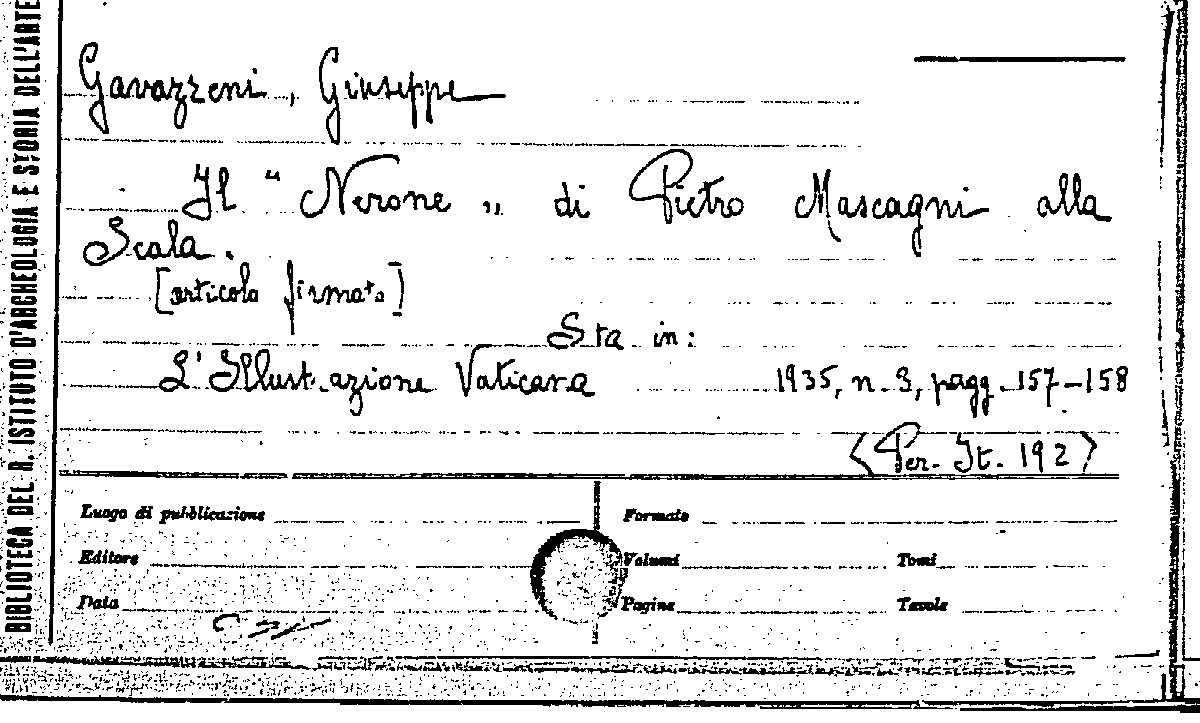 BIBLIOTECA DEL R. ISTITUTO D'ARCHEOLOGIA E STORIA DELL'ARTE
Gavazzeni, Giuseppe
Il "Nerone" di Pietro Mascagni alla
Scala.
[articolo firmato]
Sta in:
L'Illustrazione Vaticana 1935, n. 3, pagg. 157-158
<Per. It. 192>
Luogo di pubblicazione Formato
Editore Volumi Tomi
Data Pagine Tavole